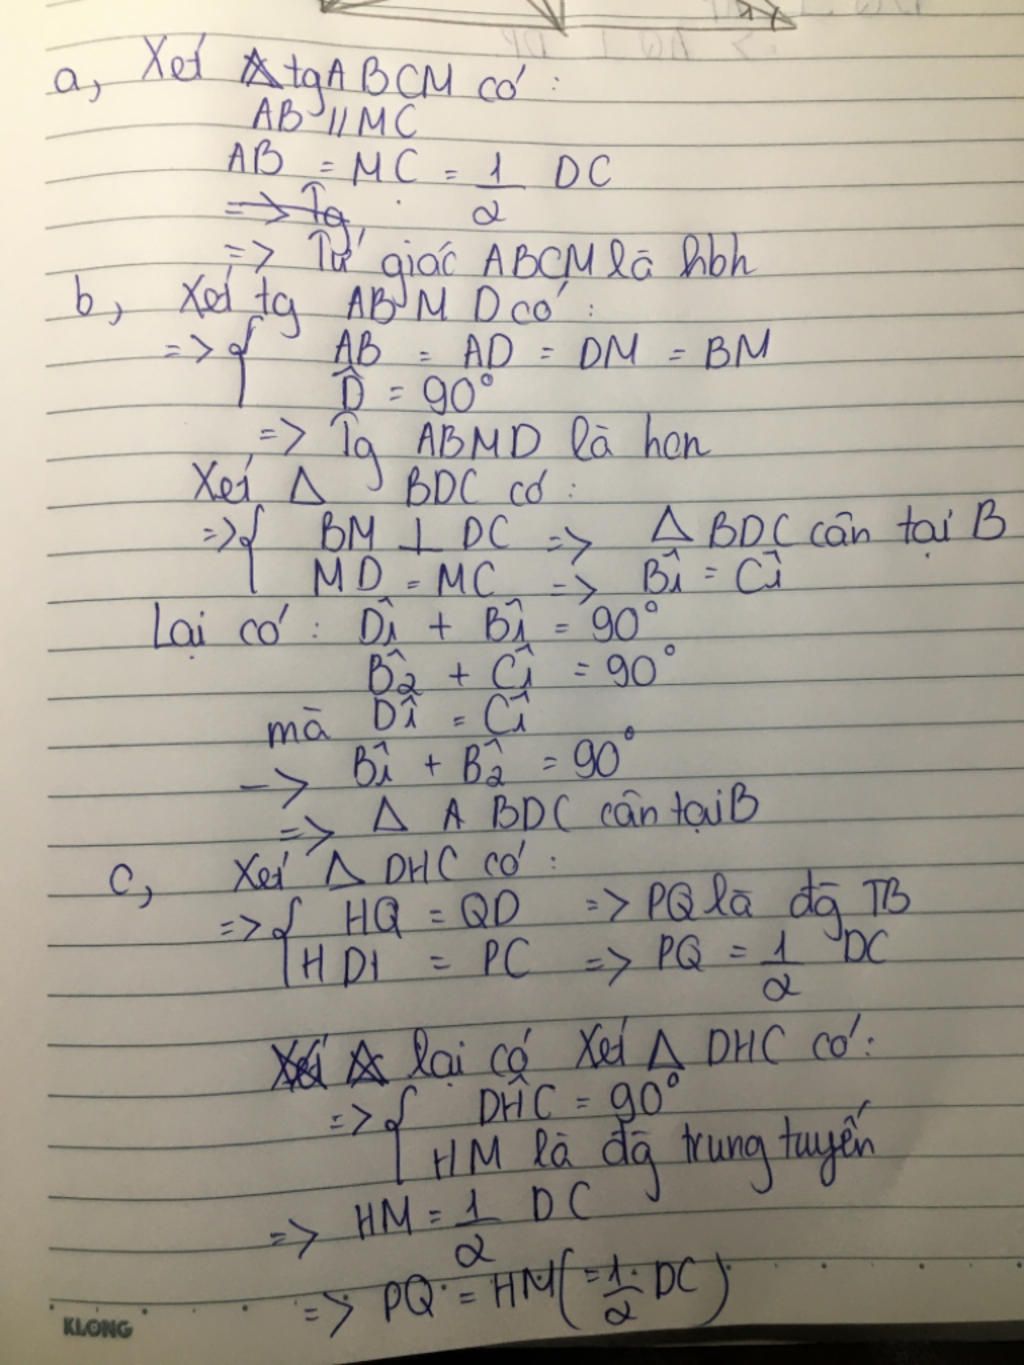 a, Xét tgABCM có :
AB // MC
AB = MC = 1/2 DC
=> Tg
=> Tứ giác ABCM là hbh
b, Xét tg ABMD có :
=> { AB = AD = DM = BM
D̂ = 90°
=> Tg ABMD là hcn
Xét Δ BDC có :
=> { BM ⊥ DC => Δ BDC cân tại B
MD = MC => B̂1 = Ĉ1
Lại có : D̂1 + B̂1 = 90°
B̂2 + Ĉ1 = 90°
mà D̂1 = Ĉ1
-> B̂1 + B̂2 = 90°
=> Δ A BDC cân tại B
c, Xét Δ DHC có :
=> { HQ = QD => PQ là đg TB
H P = PC => PQ = 1/2 DC
lại có Xét Δ DHC có :
=> { DĤC = 90°
HM là đg trung tuyến
=> HM = 1/2 DC
=> PQ = HM ( = 1/2 DC )
KLONG